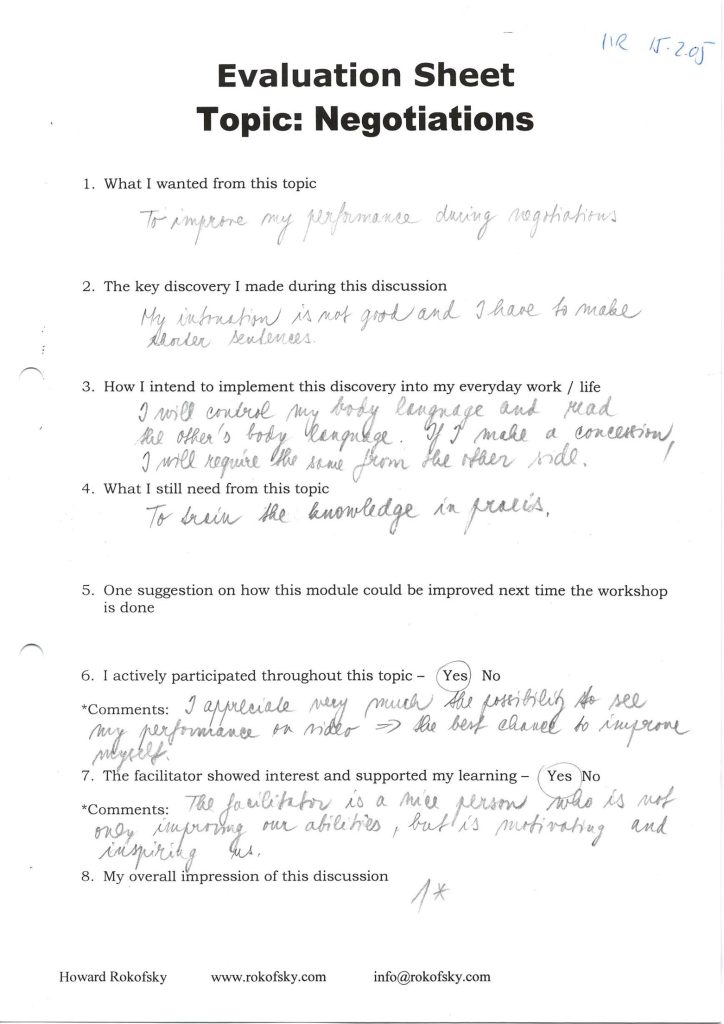 HR 15.2.05
Evaluation Sheet
Topic: Negotiations
1. What I wanted from this topic
To improve my performance during negotiations
2. The key discovery I made during this discussion
My intonation is not good and I have to make
shorter sentences.
3. How I intend to implement this discovery into my everyday work / life
I will control my body language and read
the other's body language. If I make a concession,
I will require the same from the other side.
4. What I still need from this topic
To train the knowledge in praxis.
5. One suggestion on how this module could be improved next time the workshop
is done
6. I actively participated throughout this topic – Yes No
*Comments: I appreciate very much the possibility to see
my performance on video => the best chance to improve
myself.
7. The facilitator showed interest and supported my learning – Yes No
*Comments: The facilitator is a nice person who is not
only improving our abilities, but is motivating and
inspiring us.
8. My overall impression of this discussion
1*
Howard Rokofsky www.rokofsky.com info@rokofsky.com